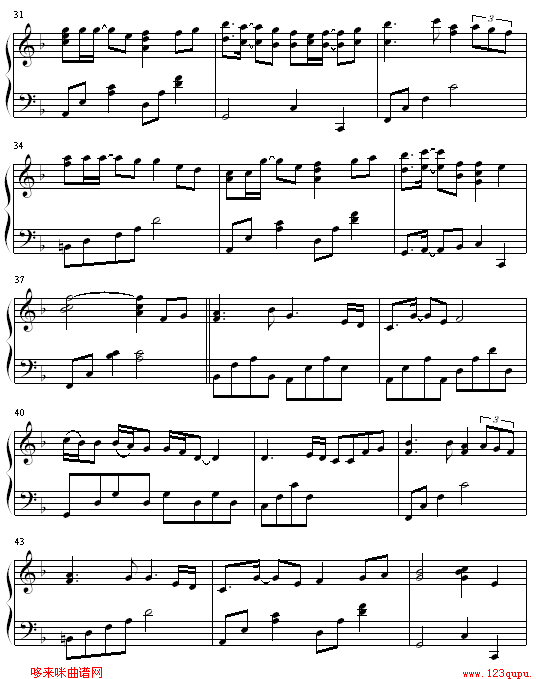 31
3
34
37
40
3
43
哆来咪曲谱网
www.123qupu.